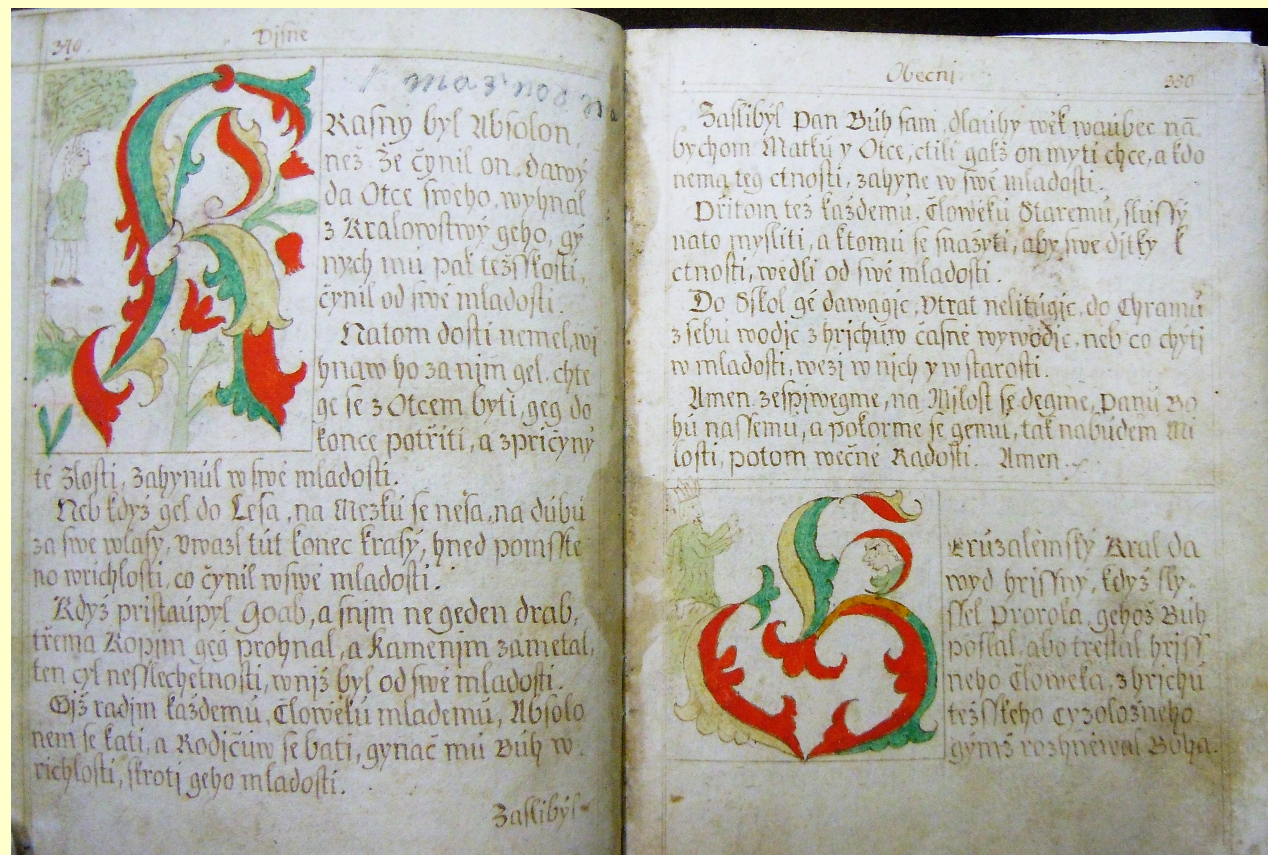 379. Pjsně
Krasny byl Absolon,
než že čynil on, dawy
da Otce sweho, wyhnal
z Kralowstwý geho, gý
nych mu pak těžsskosti,
čynil od swé mladosti.
Natom dosti neměl, wi
hnaw ho za nim gel, chtě
ge se z Otcem byti, geg do
konce potřiti, a zpričyny
té zlosti, zahynul w swé mladosti.
Neb když gel do Lesa, na Mezku se nesa, na dubu
za swe wlasy, vwazl tut konec krasý, hned pomsstě
no wrichlosti, co čynil w swé mladosti.
Když pristaupyl Goab, a snim ne geden drab,
třema Kopjm geg prohnal, a Kamenjm zametal,
ten cyl nesslechetnosti, wniž byl od swé mladosti.
Giž radjm každemu, Člowěku mlademu, Absolo
nem se kati, a Rodičuw se bati, gynač mu Bůh w
richlosti, skroti geho mladosti.
Zaslibyl
Obecni. 380
Zaslibýl Pan Bůh sam, dlauhy wěk waubec nā
bychom Matku y Otce, ctili gakž on myti chce, a kdo
nema teg ctnosti, zahyne w swé mladosti.
Přitom též každemu, Člowěku Staremu, slussý
nato mysliti, a ktomu se snažyti, aby swe djtky k
ctnosti, wedli od swé mladosti.
Do Sskol gé dawagic, vtrat nelitugic, do Chramu
z sebu wodjc z hrichůw časně wywodjc, neb co chýti
w mladosti, wezj w nich y w starosti.
Amen zespjwegme, na Milost se degme, Panu Bo
hu nassemu, a pokorme se gemu, tak nabudem Mi
losti, potom wěčné Radosti. Amen.
Geruzalémský Kral Da
wyd hrissny, když sly
ssel Proroka, gehož Bůh
poslal, abo trestal hriss
neho Člowěka, z hrichu
těžsskeho cyzoložneho
gýmž rozhněwal Boha.